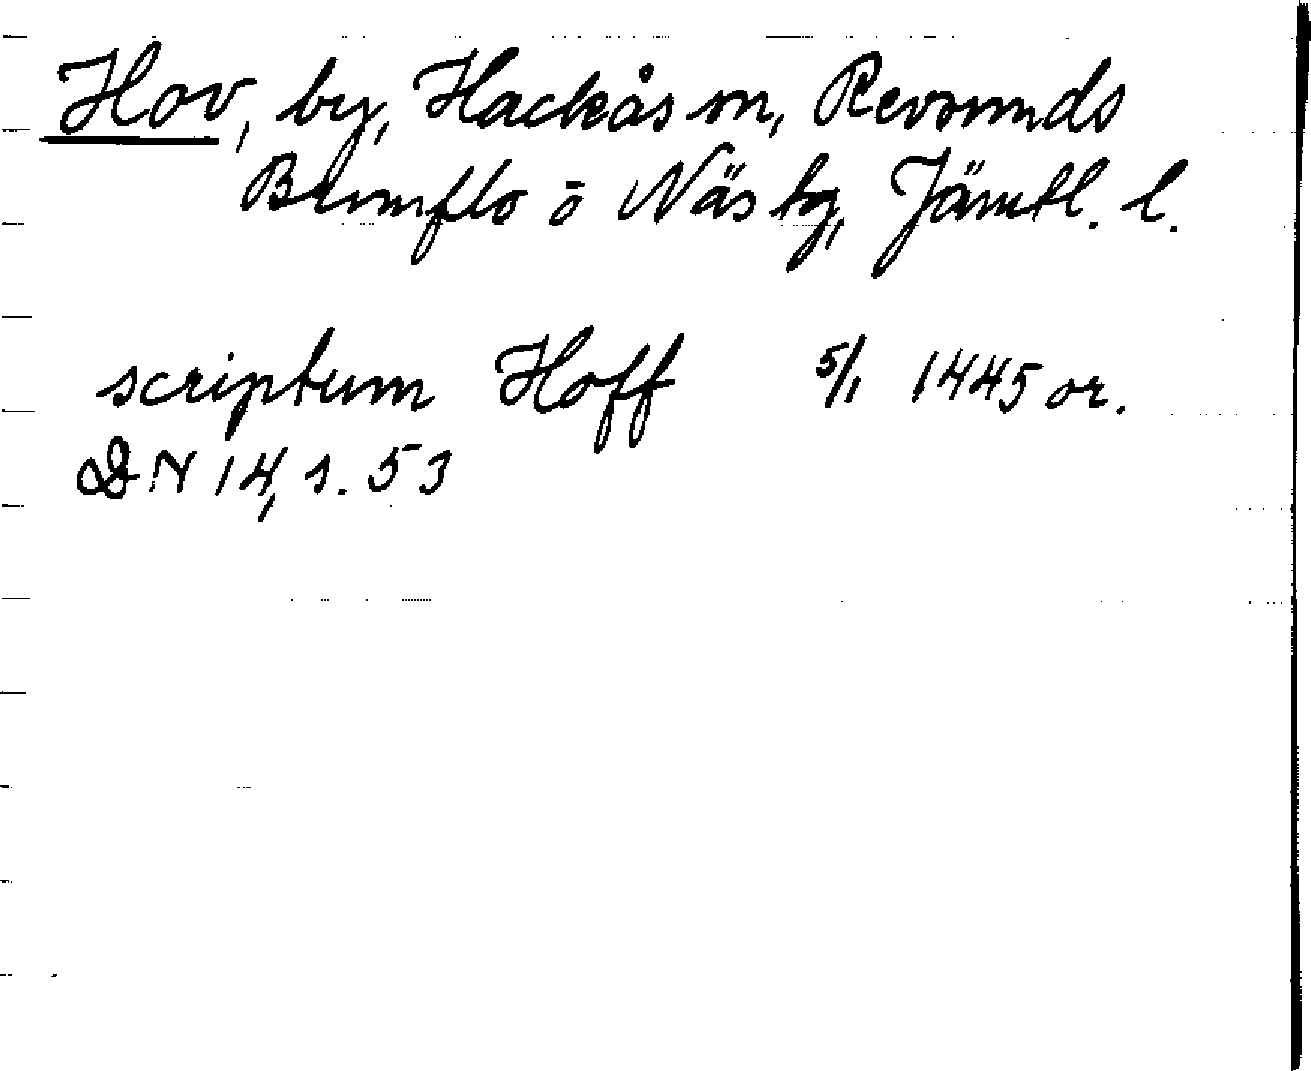 Hov, by, Hackås sn, Revsunds
Brunflo o Näs tg, Jämtl. l.
scriptum Hoff 5/1 1445 or.
DN 14, s. 53